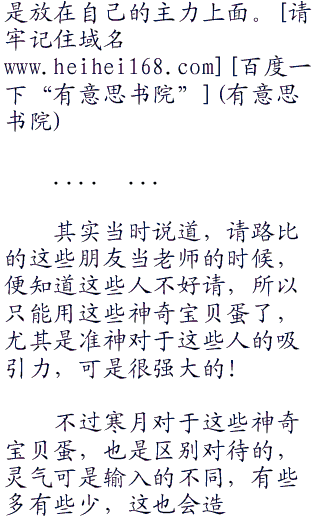 是放在自己的主力上面。[请
牢记住域名
www.heihei168.com][百度一
下“有意思书院”](有意思
书院)
.... ...
其实当时说道，请路比
的这些朋友当老师的时候，
便知道这些人不好请，所以
只能用这些神奇宝贝蛋了，
尤其是准神对于这些人的吸
引力，可是很强大的！
不过寒月对于这些神奇
宝贝蛋，也是区别对待的，
灵气可是输入的不同，有些
多有些少，这也会造